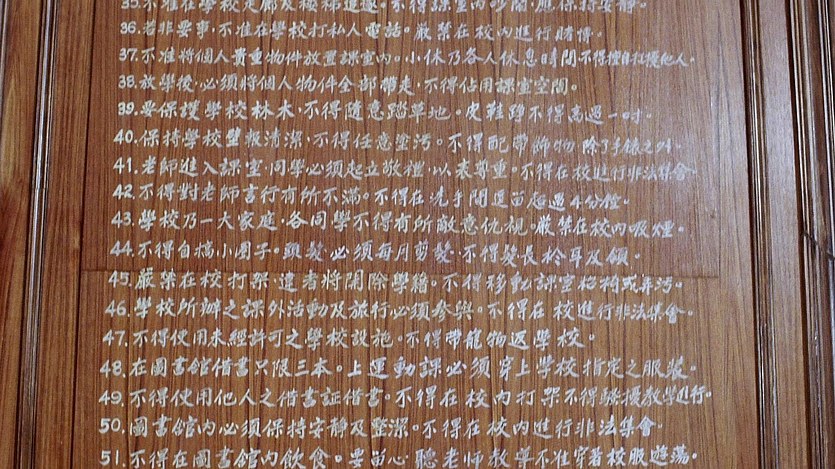 35.不在學校走廊及樓梯追逐。不得課室內吵鬧,應保持安靜。
36.若非要事,不准在學校打私人電話。嚴禁在校內進行賭博。
37.不准將個人貴重物件放置課室內。小休乃各人休息時間不得擅自打擾他人。
38.放學後,必須將個人物件全部帶走,不得佔用課室空間。
39.要保護學校林木,不得隨意踏草地。皮鞋踭不得高過一吋。
40.保持學校壁報清潔,不得任意塗污。不得配帶飾物 除了手錶之外.
41.老師進入課室,同學必須起立敬禮,以表尊重。不得在校進行非法集會.
42.不得對老師言行有所不滿。不得在洗手間逗留超過4分鐘。
43.學校乃一大家庭,各同學不得有所敵意仇視。嚴禁在校內吸煙。
44.不得自搞小圈子。頭髮必須每月剪髮,不得髮長於耳及領。
45.嚴禁在校打架,違者將開除學籍。不得移動課室枱椅或弄污。
46.學校所辦之課外活動及旅行必須參與。不得在校進行非法集會.
47.不得使用未經許可之學校設施。不得帶寵物返學校。
48.在圖書館借書只限三本。上運動課必須穿上學校指定之服裝。
49.不得使用他人之借書証借書。不得在校內打架不得騷擾教學進行.
50.圖書館內必須保持安靜及整潔。不得在校內進行非法集會.
51.不得在圖書館內飲食。要留心聽老師教學不准穿著校服遊蕩。